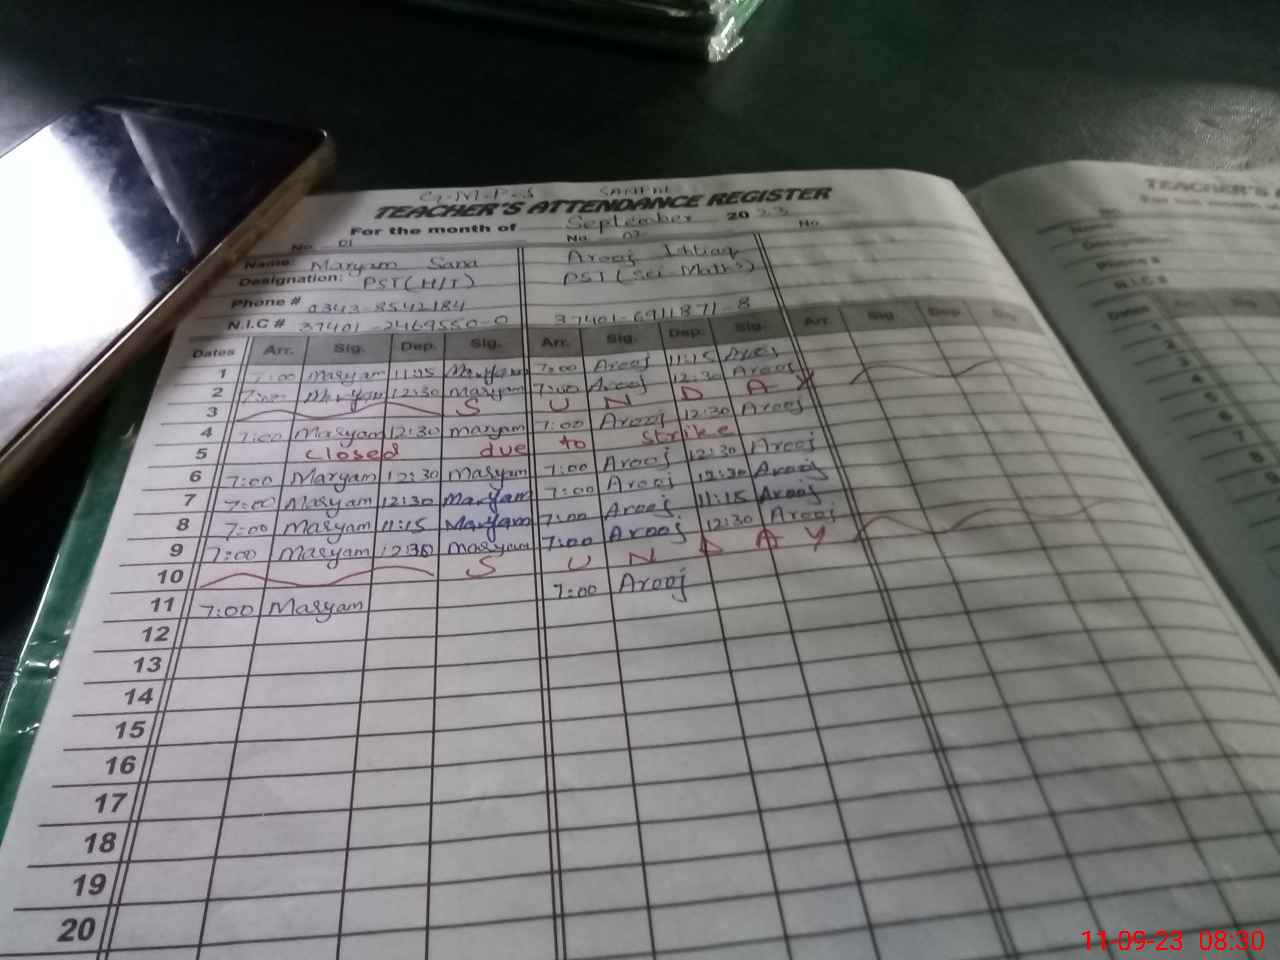 G.M.P.S
TEACHER'S ATTENDANCE REGISTER
For the month of September 2023
No. 01 No. 02 No.
Name: Maryam Sana Arooj Ishtiaq
Designation: PST(H/T) PST(Sci Maths)
Phone # 0343-8542184
N.I.C # 37401-2469550-0 37401-6911871-8
Dates Arr. Sig. Dep. Sig. Arr. Sig. Dep. Sig. Arr. Sig. Dep. Sig.
1 7:00 Maryam 11:15 Maryam 7:00 Arooj 11:15 Arooj
2 7:00 Maryam 12:30 Maryam 7:00 Arooj 12:30 Arooj
3 S U N D A Y
4 7:00 Maryam 12:30 Maryam 7:00 Arooj 12:30 Arooj
5 closed due to strike
6 7:00 Maryam 12:30 Maryam 7:00 Arooj 12:30 Arooj
7 7:00 Maryam 12:30 Maryam 7:00 Arooj 12:30 Arooj
8 7:00 Maryam 11:15 Maryam 7:00 Arooj 11:15 Arooj
9 7:00 Maryam 12:30 Maryam 7:00 Arooj 12:30 Arooj
10 S U N D A Y
11 7:00 Maryam 7:00 Arooj
12
13
14
15
16
17
18
19
20
TEACHER'S
For the month of
Phone #
N.I.C #
Dates Arr. Sig.
1
2
3
4
5
6
7
8
9
11-09-23 08:30